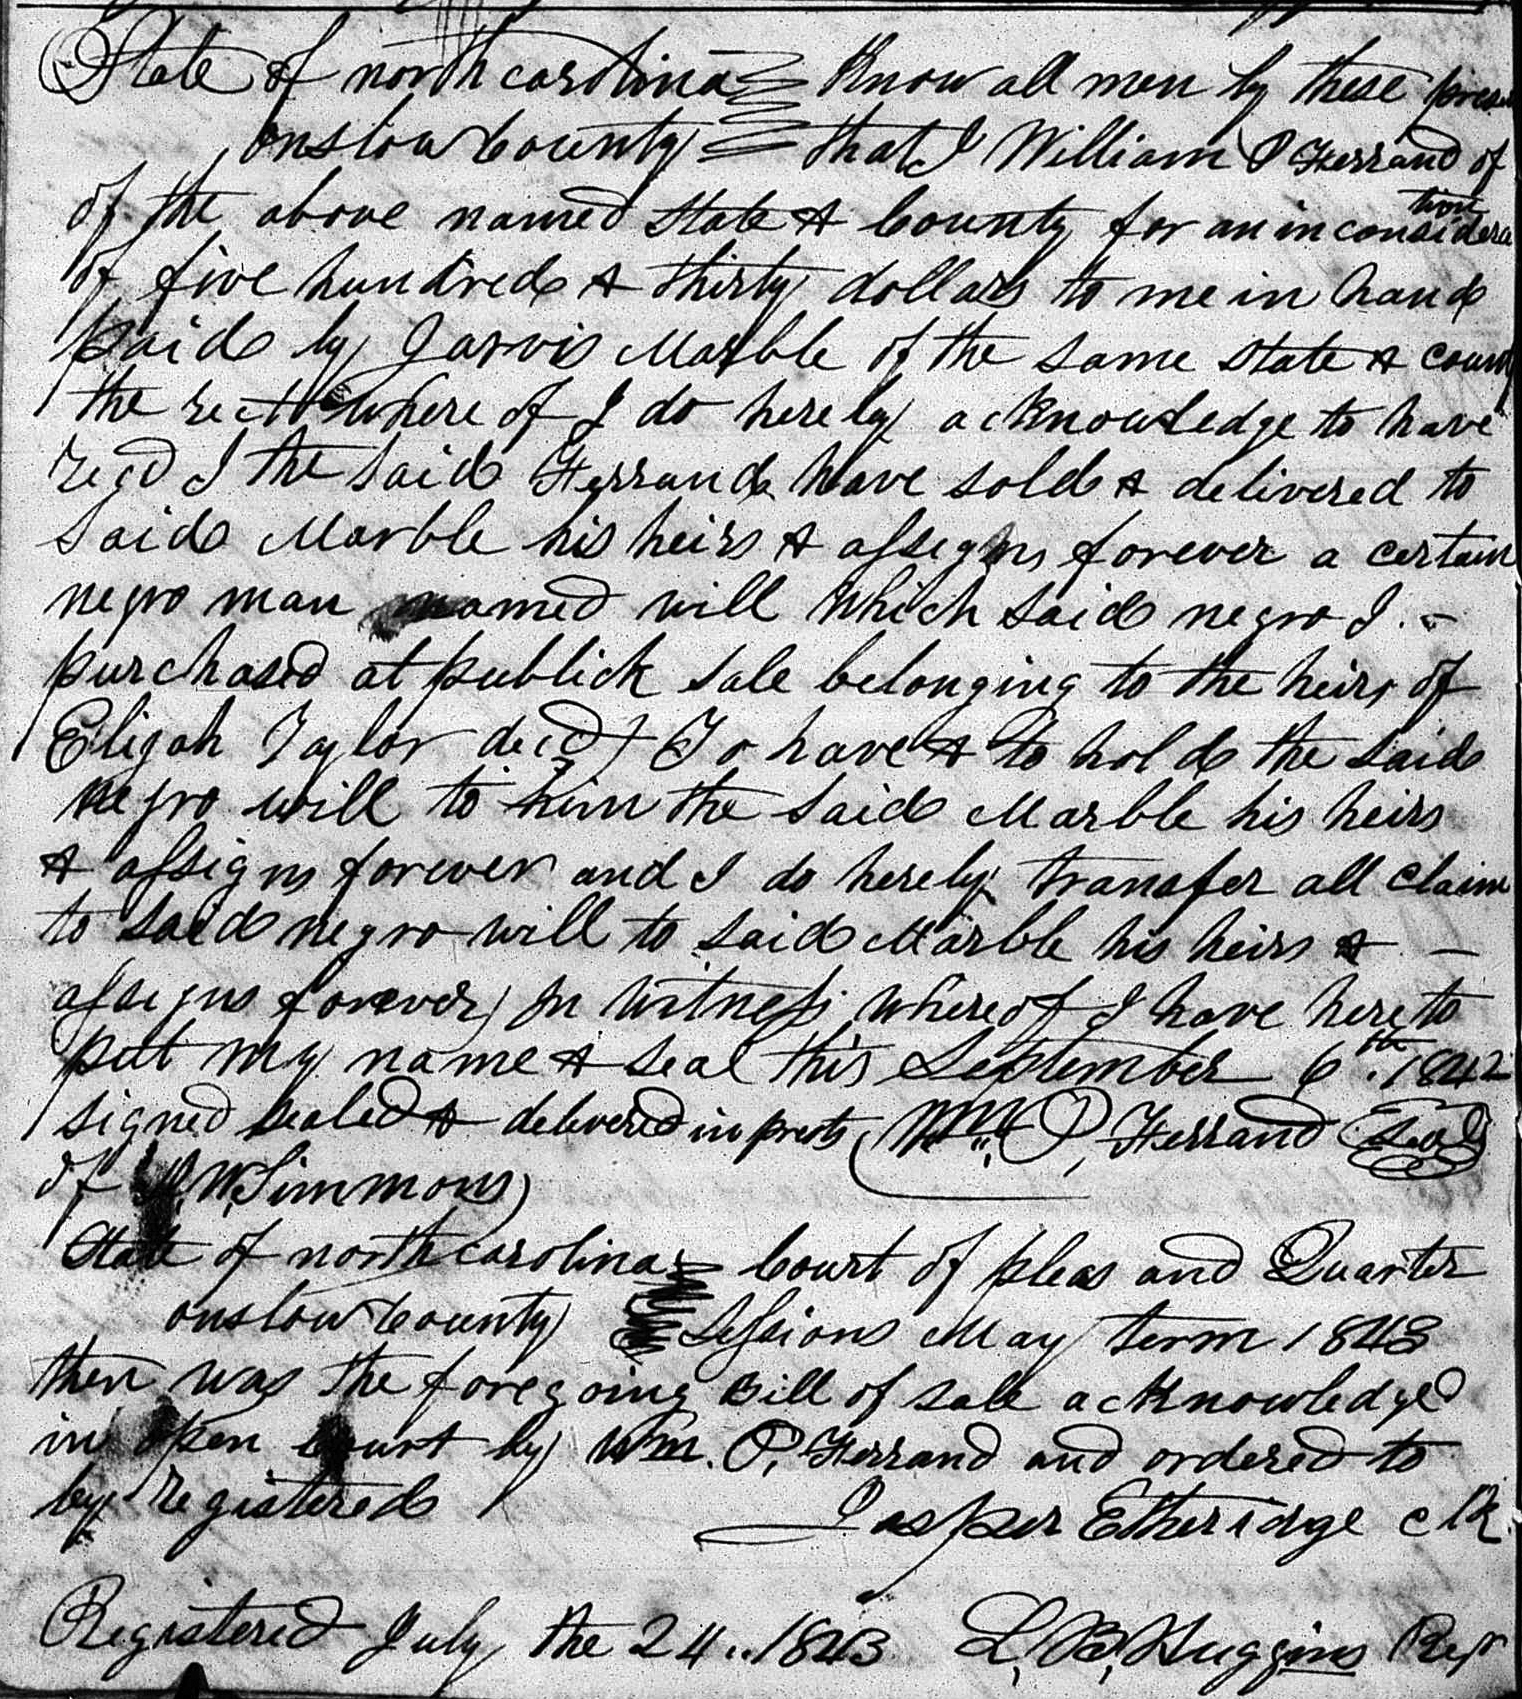 State of north carolina Know all men by these
onslow County that I William P Ferrand of
of the above named State & County for an in considera tion
of five hundred & thirty dollars to me in hand
paid by Jarvis Marble of the same state & county
the rect where of I do hereby acknowledge to have
recd I the said Ferrand have sold & delivered to
said Marble his heirs & assigns forever a certain
negro man named will which said negro I -
purchased at publick sale belonging to the heirs of
Elijah Taylor decd To have & to hold the said
negro will to him the said Marble his heirs
& assigns forever and I do hereby transfer all claim
to said negro will to said Marble his heirs & -
assigns forever, In witness whereof I have hereto
put my name & seal this September 6th. 1842
signed sealed & delivered in prests Wm. P, Ferrand Seal
of W. Simmons
State of north carolina Court of pleas and Quarter
onslow County Sessions May term 1843
then was the foregoing Bill of sale acknowledged
in open court by Wm. P, Ferrand and ordered to
by registered
Jasper Etheridge clk
Registered July the 24..1843 L, B, Huggins Regr